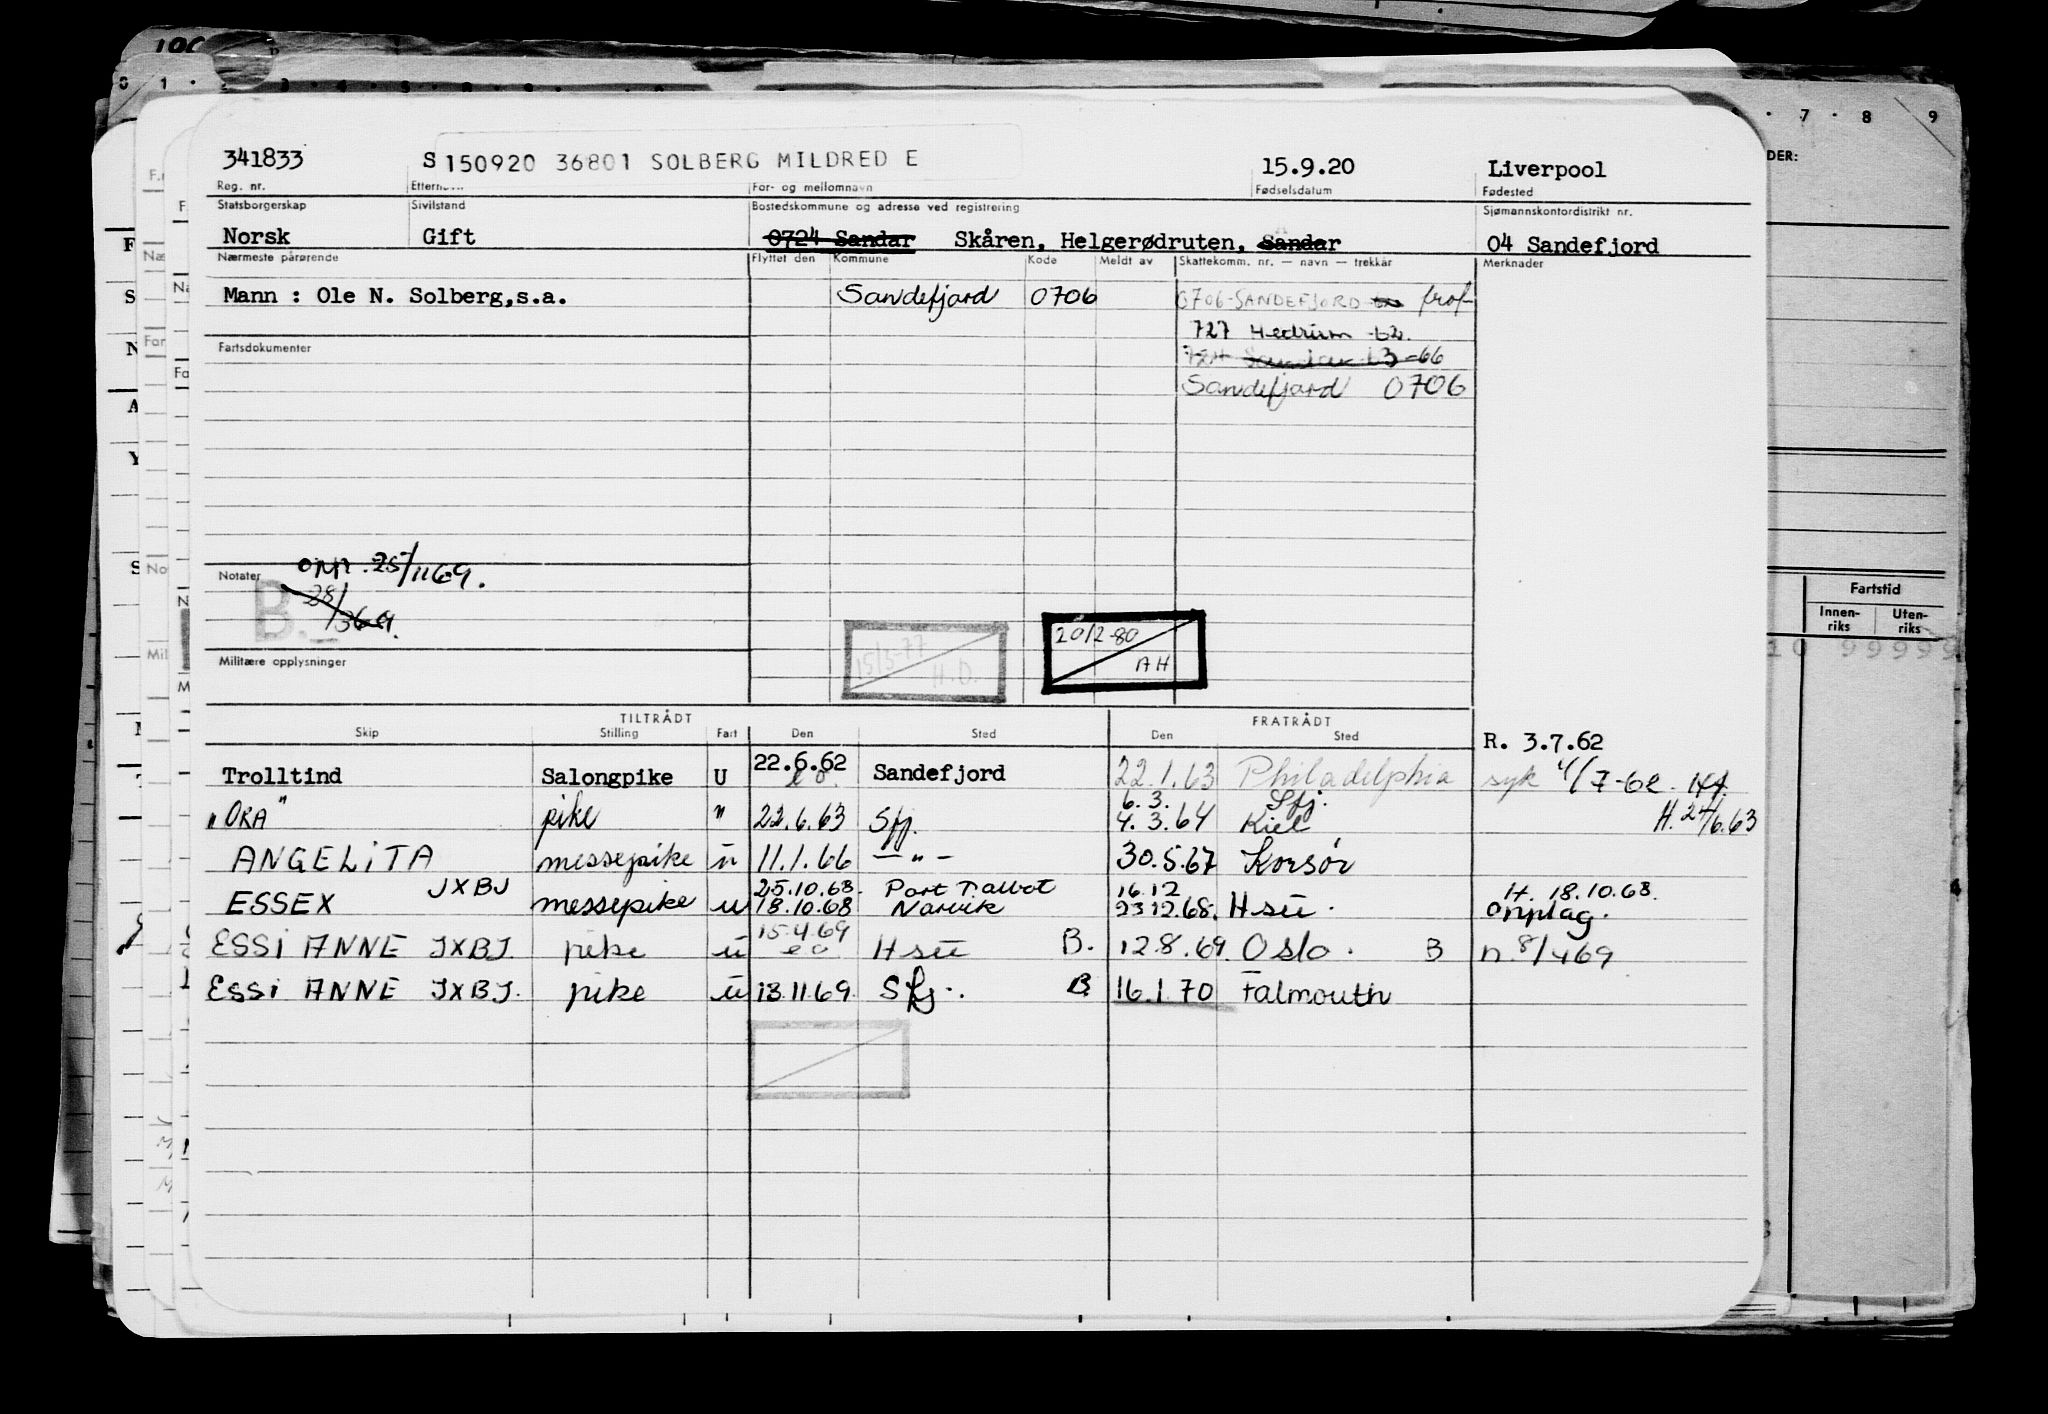 341833 S 150920 36801 SOLBERG MILDRED E 15.9.20 Liverpool
Reg. nr. Etternavn For- og mellomnavn Fødselsdatum Fødested
Statsborgerskap Sivilstand Bostedskommune og adresse ved registrering Sjømannskontordistrikt nr.
Norsk Gift 0724 Sandar Skåren, Helgerødruten, Sandar 04 Sandefjord
Nærmeste pårørende Flyttet den Kommune Kode Meldt av Skattekomm. nr. — navn — trekkår Merknader
Mann : Ole N. Solberg,s.a. Sandefjord 0706 0706-SANDEFJORD
727 Hedrum 62.
Fartsdokumenter -66
Sandefjord 0706
Notater OMN. 25/11 69.
B. 28/3 69.
Militære opplysninger 15/3-77 H.D. 20/2-80 AH
TILTRÅDT FRATRÅDT
Skip Stilling Fart Den Sted Den Sted
R. 3.7.62
Trolltind Salongpike U 22.6.62 Sandefjord 22.1.63 Philadelphia syk 4/7-62
6.3. Sfj.
"ORA" pike " 22.6.63 Sfj. 4.3.64 Kiel H. 24/6.63
ANGELITA messepike u 11.1.66 — " — 30.5.67 Korsör
JXBJ 25.10.68. Port Talbot 16.12 H. 18.10.68.
ESSEX messepike u 18.10.68 Narvik 23 12.68. Hsü. opplag.
15.4.69
ESSI ANNE JXBJ. pike u e o. Hsü B. 12.8.69. Oslo. B n 8/4 69
ESSI ANNE JXBJ. pike u 13.11.69. Sfj. B. 16.1.70 Falmouth
DER:
7 · 8 9
Fartstid
Innen-riks Uten-riks
10 99999